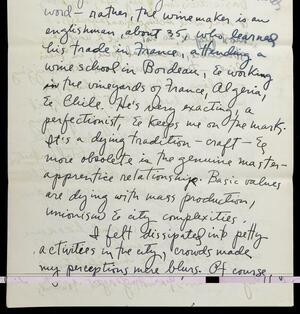 word – rather, the winemaker is an
englishman, about 35, who learned
his trade in France, attending a
wine school in Bordeau, & working
in the vineyards of France, Algeria,
& Chile. He's very exacting, a
perfectionist, & keeps me on the mark.
It's a dying tradition – craft – &
more obsolete in the genuine master-
apprentice relationship. Basic values
are dying with mass production,
unionism & city complexities.
I felt dissipated into petty
activities in the city, crowds made
my perceptions mere blurs. Of course,